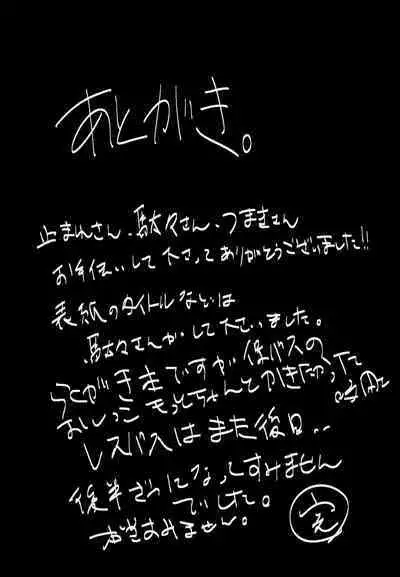 あとがき。
止まれさん、駄々さん、つまきさん
お手伝いして下さってありがとうございました!!
表紙のタイトルなどは
駄々さんがして下さいました。
ですが
おしっこもっとちゃんとかきたかった
レスバスはまた後日..
後半ざつになってすみません
でした。
本当すみません。
完